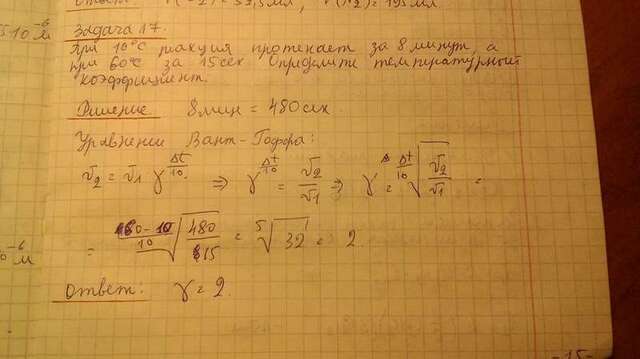 Ответ: V(_2) = 52,5 мл, V(N2) = 195 мл.
Задача 17.
При 10°С реакция протекает за 8 минут, а
при 60°С за 15 сек Определите температурный
коэффициент.
Решение. 8 мин = 480 сек.
Уравнении Вант-Гоффа:
υ2 = υ1 γ^(Δt/10) ⇒ γ^(Δt/10) = υ2/υ1 ⇒ γ = ^(Δt/10)√(υ2/υ1) =
= ^((60-10)/10)√(480/15) = ⁵√32 = 2
Ответ: γ = 2.
10⁻⁶ м
⁻⁶ м
-15-